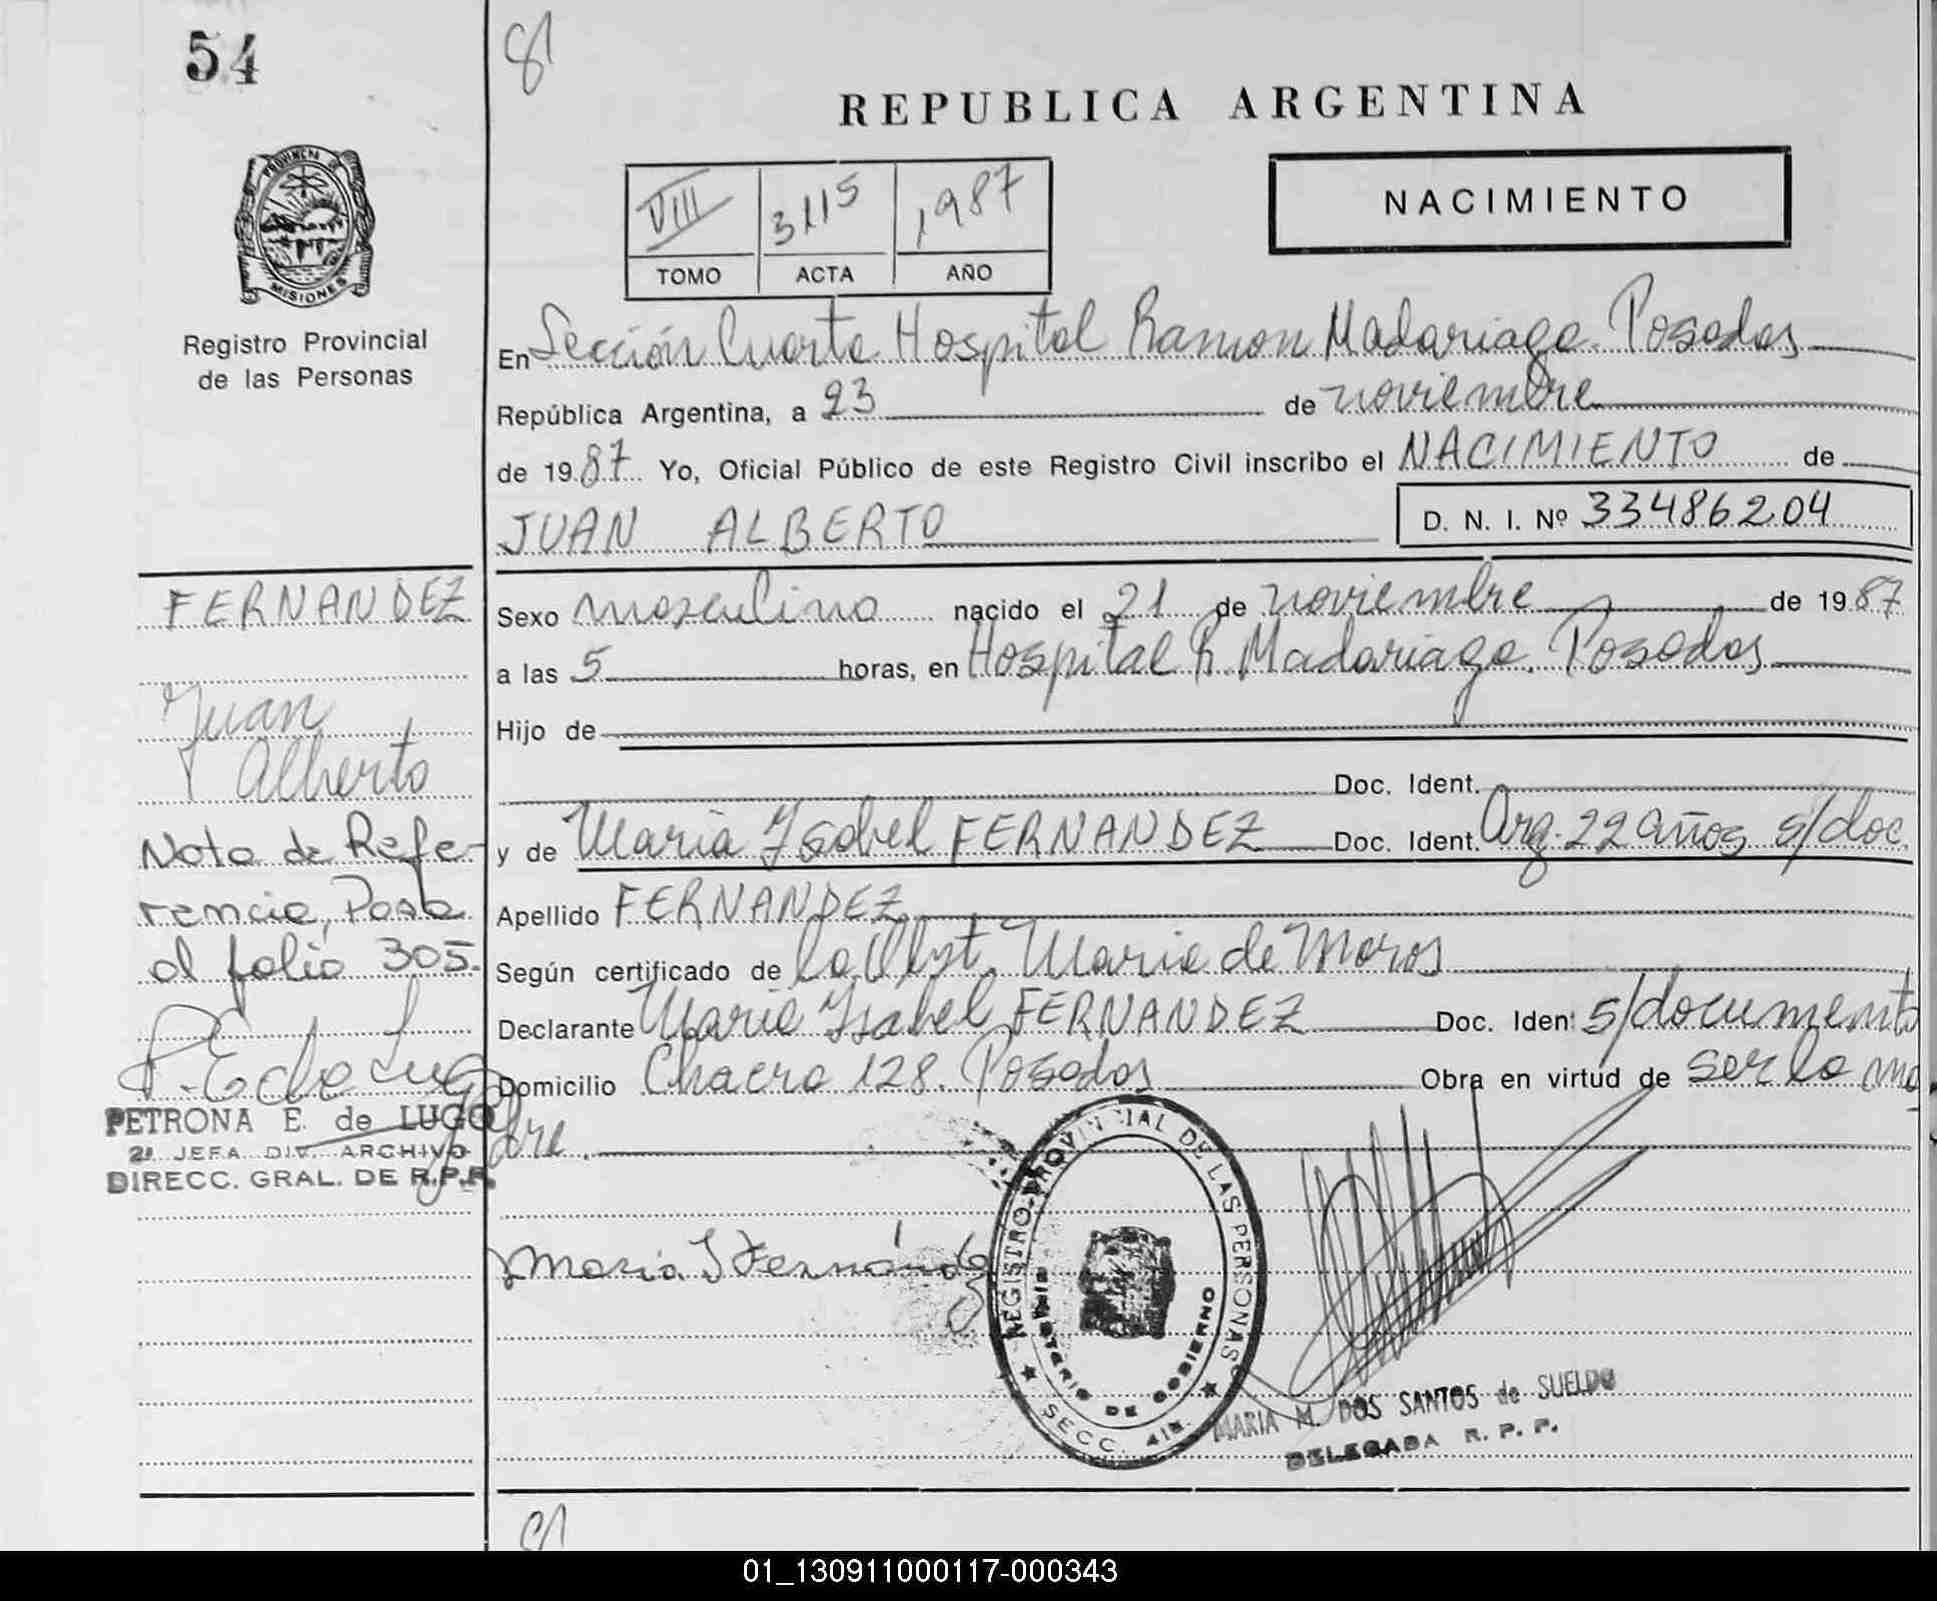 54
81
PROVINCIA DE
MISIONES
Registro Provincial
de las Personas
REPUBLICA ARGENTINA
VIII 3115 1987
TOMO ACTA AÑO
NACIMIENTO
En Sección Cuarta Hospital Ramon Madariaga. Posadas
República Argentina, a 23 de noviembre
de 1987 Yo, Oficial Público de este Registro Civil inscribo el NACIMIENTO de
JUAN ALBERTO D. N. I. Nº 33486204
FERNANDEZ
Juan
Alberto
Nota de Refe-
rencia, Pasa
al folio 305.
PETRONA E. de LUGO
2ª JEFA DIV. ARCHIVO
DIRECC. GRAL. DE R.P.P.
Sexo masculino nacido el 21 de noviembre de 1987
a las 5 horas, en Hospital R. Madariaga. Posadas
Hijo de
Doc. Ident.
y de Maria Ysabel FERNANDEZ Doc. Ident. Arg. 22 años s/doc.
Apellido FERNANDEZ
Según certificado de la Obst. Maria de Moros
Declarante Maria Ysabel FERNANDEZ Doc. Iden s/documento
Domicilio Chacra 128. Posadas Obra en virtud de ser la ma
dre.
Maria I Fernández
REGISTRO PROVINCIAL DE LAS PERSONAS
MINISTERIO DE GOBIERNO
SECC. 4ta.
MARIA M. DOS SANTOS de SUELDO
DELEGADA R. P. P.
01_130911000117-000343